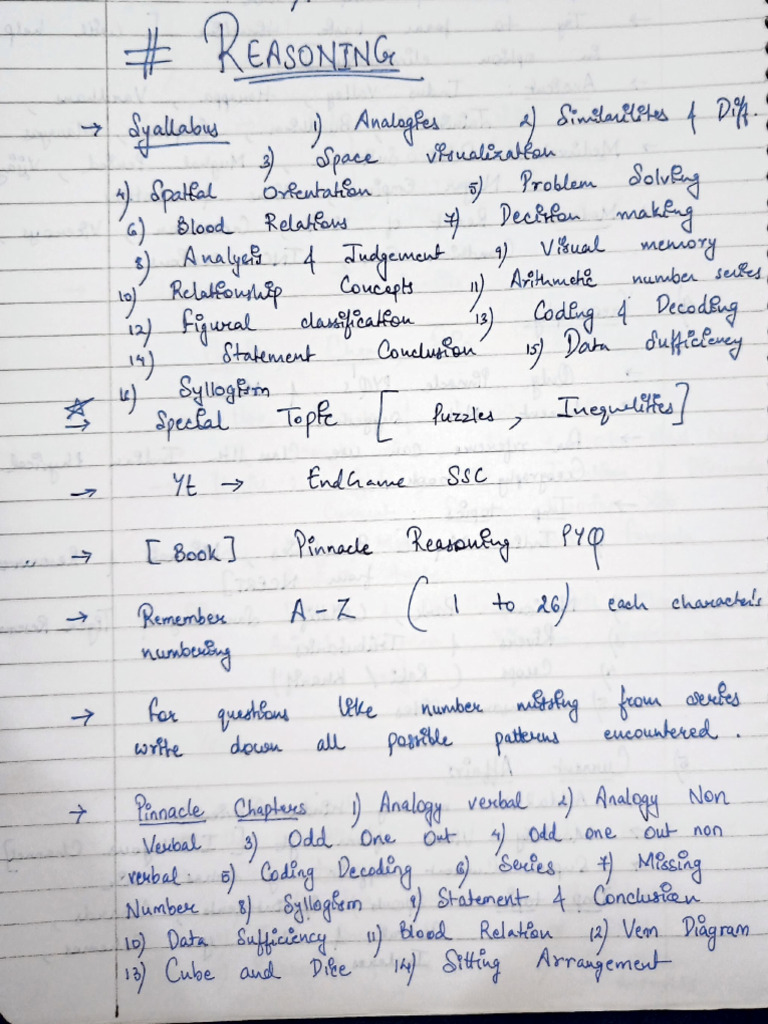 # REASONING
→ Syallabus 1) Analogies 2) Similarilites & Diff.
3) Space visualization
4) Spatial Orientation 5) Problem Solving
6) Blood Relations 7) Decision making
8) Analysis & Judgement 9) Visual memory
10) Relationship Concepts 11) Arithmetic number series
12) Figural classification 13) Coding & Decoding
14) Statement Conclusion 15) Data Sufficiency
16) Syllogism
☆→ Special Topic [ Puzzles, Inequelities]
→ Yt → EndGame SSC
→ [Book] Pinnacle Reasoning PYQ
→ Remember A-Z (1 to 26) each character's
numbering
→ For questions like number missing from series
write down all possible patterns encountered.
→ Pinnacle Chapters 1) Analogy verbal 2) Analogy Non
Verbal 3) Odd One Out 4) Odd one out non
verbal 5) Coding Decoding 6) Series 7) Missing
Number 8) Syllogism 9) Statement & Conclusion
10) Data Sufficiency 11) Blood Relation 12) Venn Diagram
13) Cube and Dice 14) Sitting Arrangement